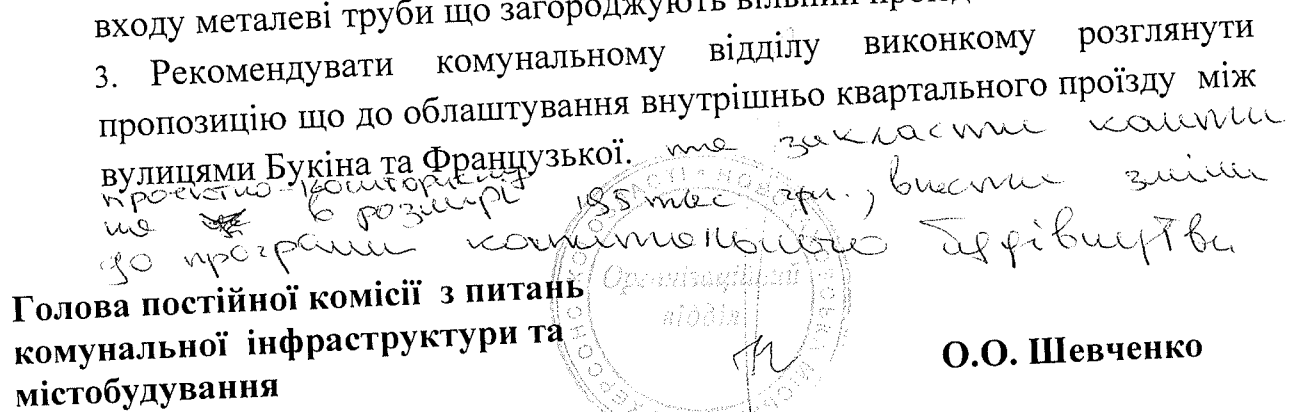 входу металеві труби що загороджують вільний
3. Рекомендувати комунальному відділу виконкому розглянути
пропозицію що до облаштування внутрішньо квартального проїзду між
вулицями Букіна та Французької. та закласти кошти
проектно-кошторисну
на в розмірі 195 тис грн., внести зміни
до програми капітального будівництва
Організаційний
відділ
Голова постійної комісії з питань
комунальної інфраструктури та
містобудування
О.О. Шевченко